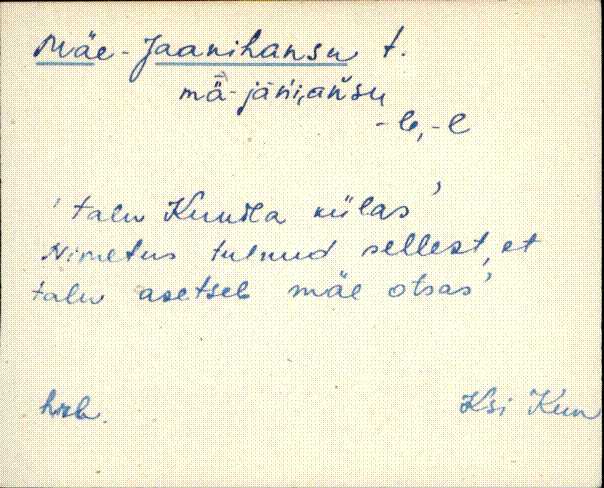 Mäe-Jaanihansu t.
mä̀-jäńi,ańsu
-le, -l
'talu Kunda külas'
Nimetus tulnud sellest, et
talu asetseb mäe otsas'
hrl.
Ksi Kun